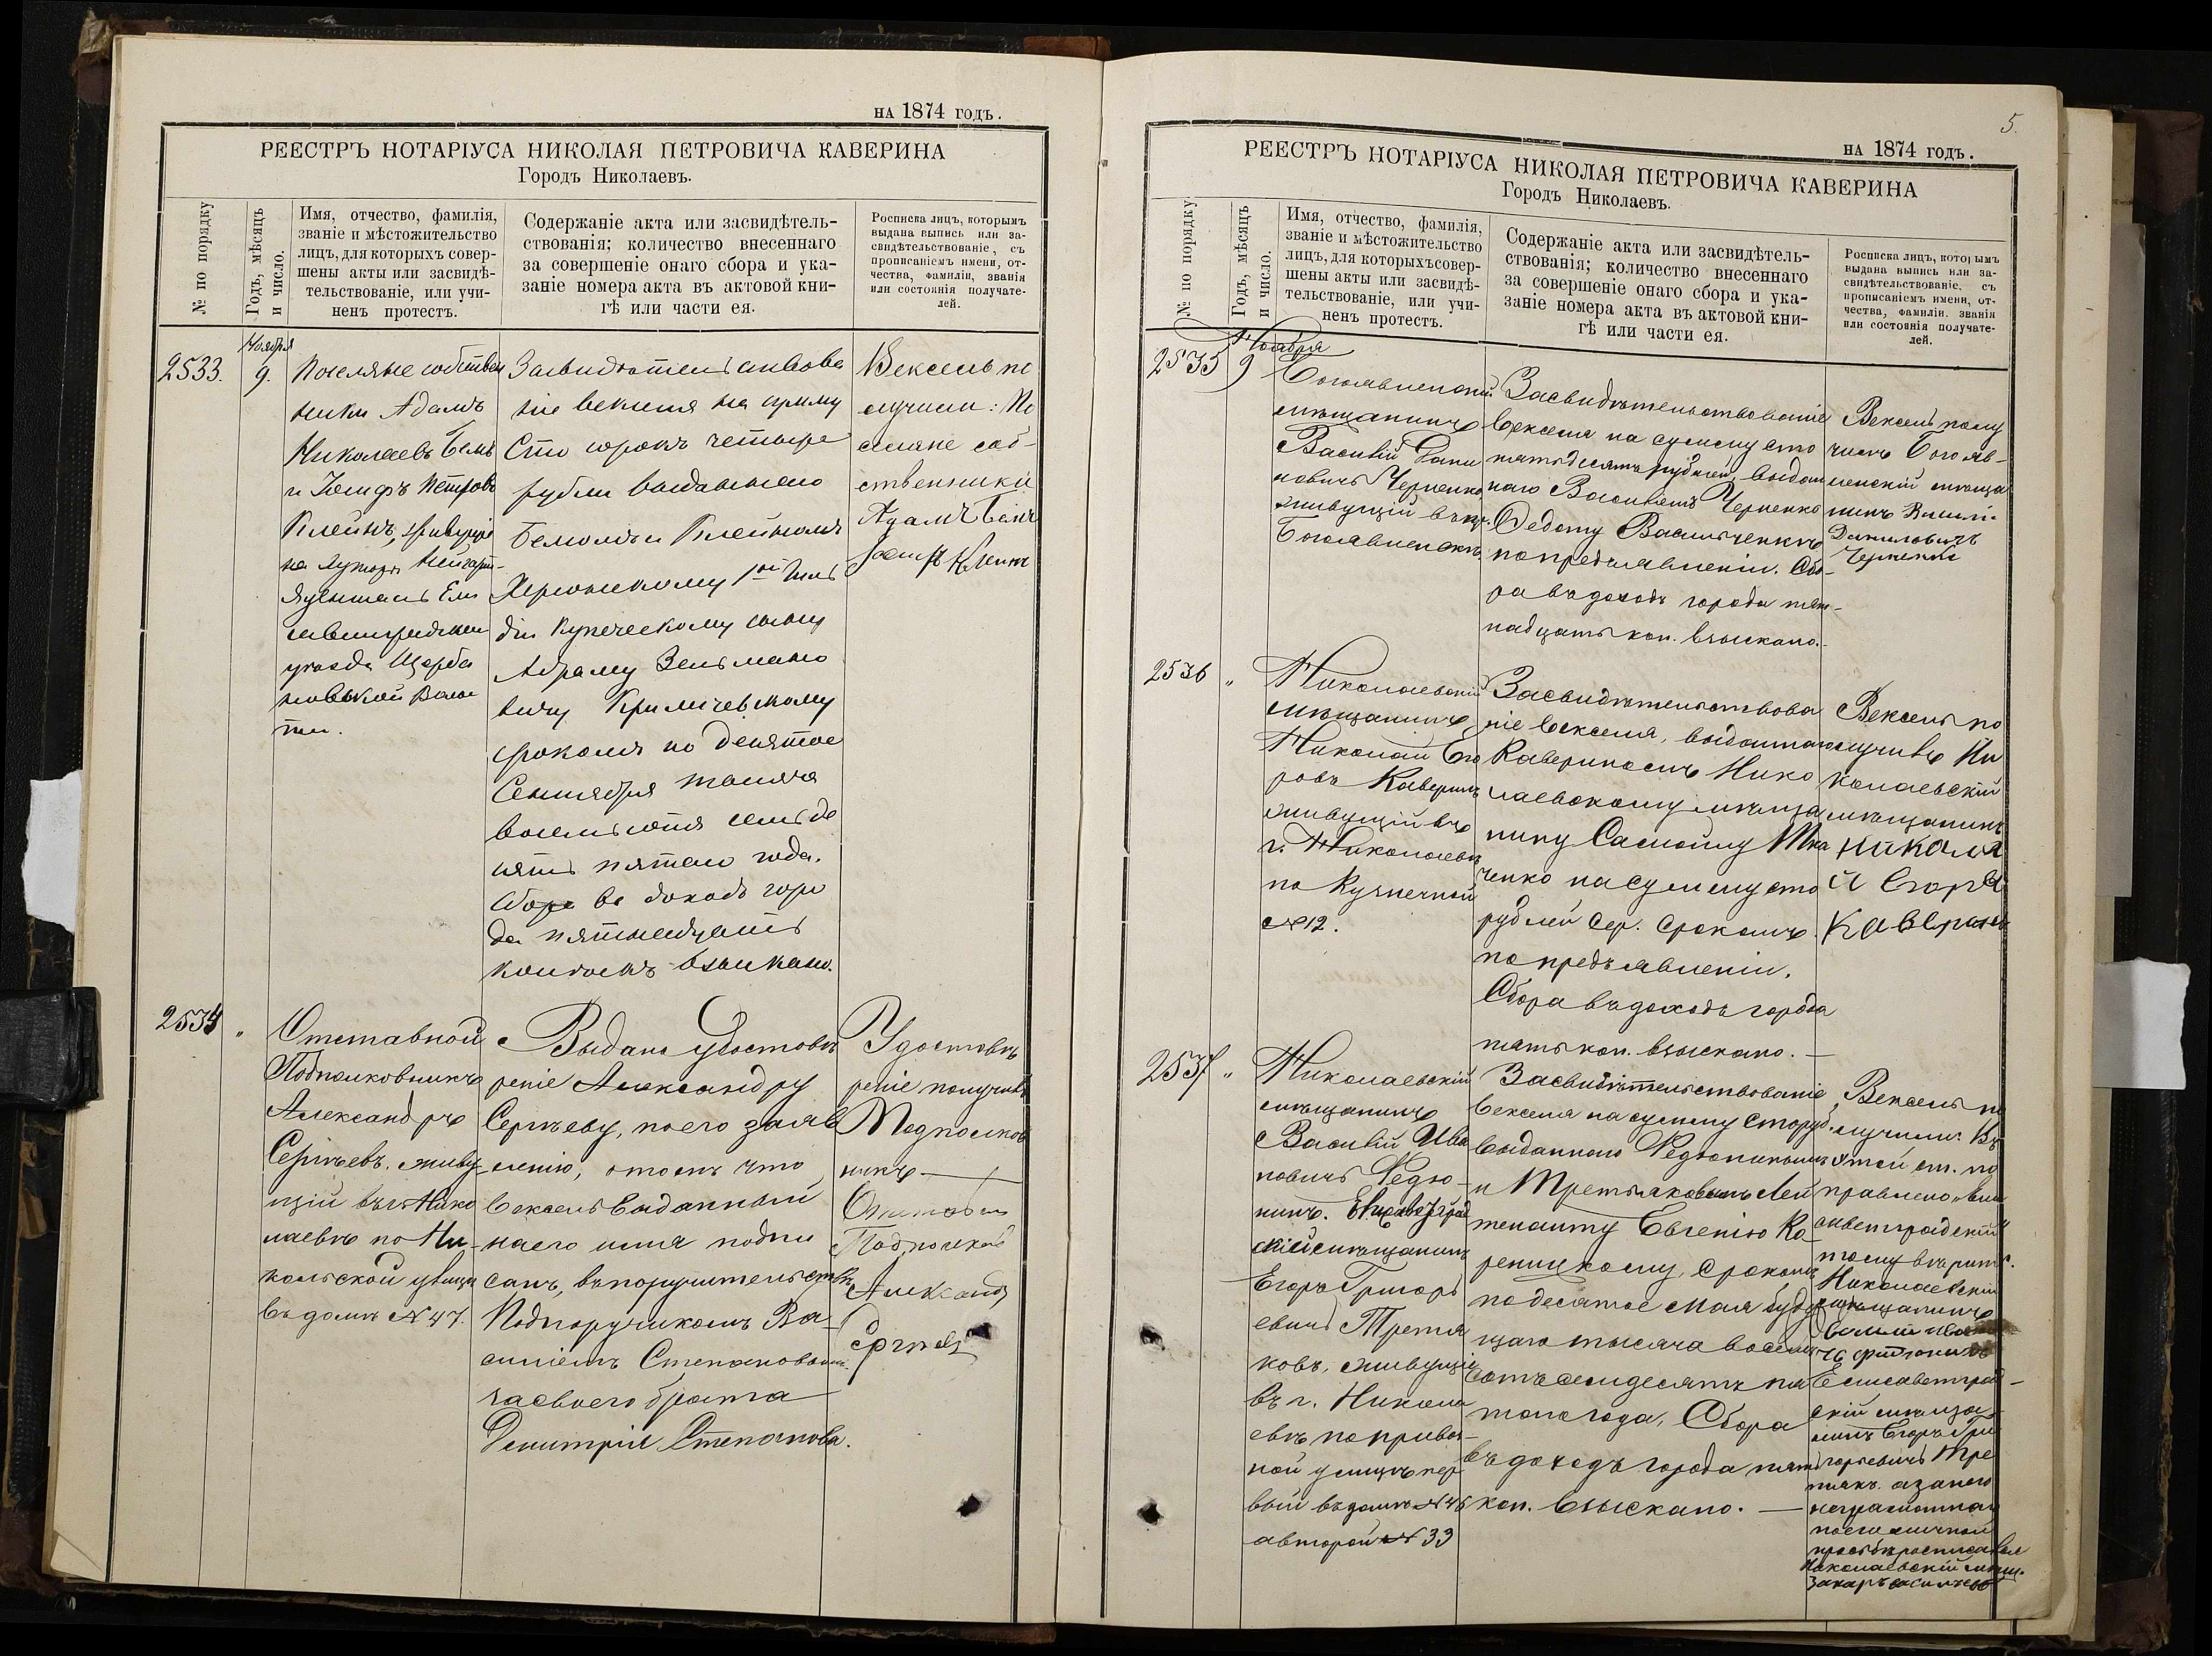 НА 1874 ГОДЪ.
РЕЕСТРЪ НОТАРІУСА НИКОЛАЯ ПЕТРОВИЧА КАВЕРИНА
Городъ Николаевъ.
№ по порядку
Годъ, мѣсяцъ
и число.
Имя, отчество, фамилія,
званіе и мѣстожительство
лицъ, для которыхъ совер-
шены акты или засвидѣ-
тельствованіе, или учи-
ненъ протестъ.
Содержаніе акта или засвидѣтель-
ствованія; количество внесеннаго
за совершеніе онаго сбора и ука-
заніе номера акта въ актовой кни-
гѣ или части ея.
Росписка лицъ, которымъ
выдана выпись или за-
свидѣтельствованіе, съ
прописаніемъ имени, от-
чества, фамиліи, званія
или состоянія получате-
лей.
Ноября
2533.
9.
Поселяне собствен
ники Адамъ
Николаевъ Бемъ
и Іосифъ Петровъ
Клейнъ, живущіе
на хуторѣ
Ели
саветградскаго
уѣзда Щерба
новской Волос
ти.
Засвидѣтельствова
ніе векселя на сумму
Сто сорокъ четыре
рубли выданнаго
Бемомъ и Клейномъ
Херсонскому 1ой Гиль
діи Купеческому сыну
Абраму Зельмано
вичу Кримчевскому
срокомъ по девятое
Сентября тысяча
восемьсотъ семьде
сятъ пятаго года.
Сбора въ доходъ горо
да пятнадцать
копѣекъ взыскано.
Вексель по
лучили: По
селяне соб-
ственники
Адамъ Бемъ
Іосифъ Клейнъ
2534
"
Отставной
Подполковникъ
Александръ
Сергѣевъ. живу-
щій въ г. Нико
лаевѣ по Ни-
кольской улицѣ
въ домѣ № 47.
Выдано удостовѣ
реніе Александру
Сергѣеву, по его заяв
ленію, о томъ что
вексель выданный
на его имя подпи
санъ, въ поручительствѣ
Подпоручикомъ Ва-
силіемъ Степановымъ
за своего брата
Димитрія Степанова.
Удостовѣ
реніе получилъ
Подполков
никъ
Отставной
Подполков
Александръ
Сергѣевъ
5.
НА 1874 ГОДЪ.
РЕЕСТРЪ НОТАРІУСА НИКОЛАЯ ПЕТРОВИЧА КАВЕРИНА
Городъ Николаевъ.
№ по порядку
Годъ, мѣсяцъ
и число.
Имя, отчество, фамилія,
званіе и мѣстожительство
лицъ, для которыхъ совер-
шены акты или засвидѣ-
тельствованіе, или учи-
ненъ протестъ.
Содержаніе акта или засвидѣтель-
ствованія; количество внесеннаго
за совершеніе онаго сбора и ука-
заніе номера акта въ актовой кни-
гѣ или части ея.
Росписка лицъ, которымъ
выдана выпись или за-
свидѣтельствованіе, съ
прописаніемъ имени, от-
чества, фамиліи, званія
или состоянія получате-
лей.
Ноября
2535
9
Богоявленскій
мѣщанинъ
Василій Дани
ловичъ Черненко
живущій въ
Богоявленскѣ
Засвидѣтельствованіе
векселя на сумму сто
пятьдесятъ рублей, выдан
наго Василіемъ Черненко
Федоту Васильченкѣ
по предъявленіи. Сбо-
ра въ доходъ города пят-
надцать коп. взыскано.
Вексель полу
чилъ Богояв-
ленскій мѣща
нинъ Василій
Даниловичъ
Черненко
2536
"
Николаевскій
мѣщанинъ
Николай Его
ровъ Каверинъ
живущій въ
г. Николаевѣ
по Кузнечной
№ 12.
Засвидѣтельствова
ніе векселя, выданнаго
Каверинымъ Нико
лаевскому мѣща
нину Самойлу Тка
ченко на сумму сто
рублей сер. срокомъ
по предъявленіи.
Сбора въ доходъ города
пять коп. взыскано.
Вексель по
лучилъ Ни
колаевскій
мѣщанинъ
Никола
й Егоръ
Каверинъ
2537
"
Николаевскій
мѣщанинъ
Василій Ива
новичъ Федю-
нинъ. Елисаветград
скій мѣщанинъ
Егоръ Григорь
евичъ Третья
ковъ, живущіе
въ г. Никола
евѣ по привоз-
ной улицѣ пер
вый въ домѣ № 46
а второй № 33
Засвидѣтельствованіе
векселя на сумму сто руб.
выданнаго Федюнинымъ
и Третьяковымъ Лей
тенанту Евгенію Ко-
реницкому, срокомъ
по десятое Мая буду
щаго тысяча восемь
сотъ семидесятъ пя
таго года. Сбора
въ доходъ города пять
коп. взыскано.
Вексель по
лучили: Въ
этой ст. по
правлено "Ели
саветградскій"
тому вѣрить.
Николаевскій
мѣщанинъ
Василій Ивано
въ Федюнинъ
Елисаветград-
скій мѣща-
нинъ Егоръ Гри
горьевичъ Тре
тьяк. а за него
неграмотнаго
по его личной
просьбѣ росписался
Николаевскій мѣщ.
Захаръ Васильевъ